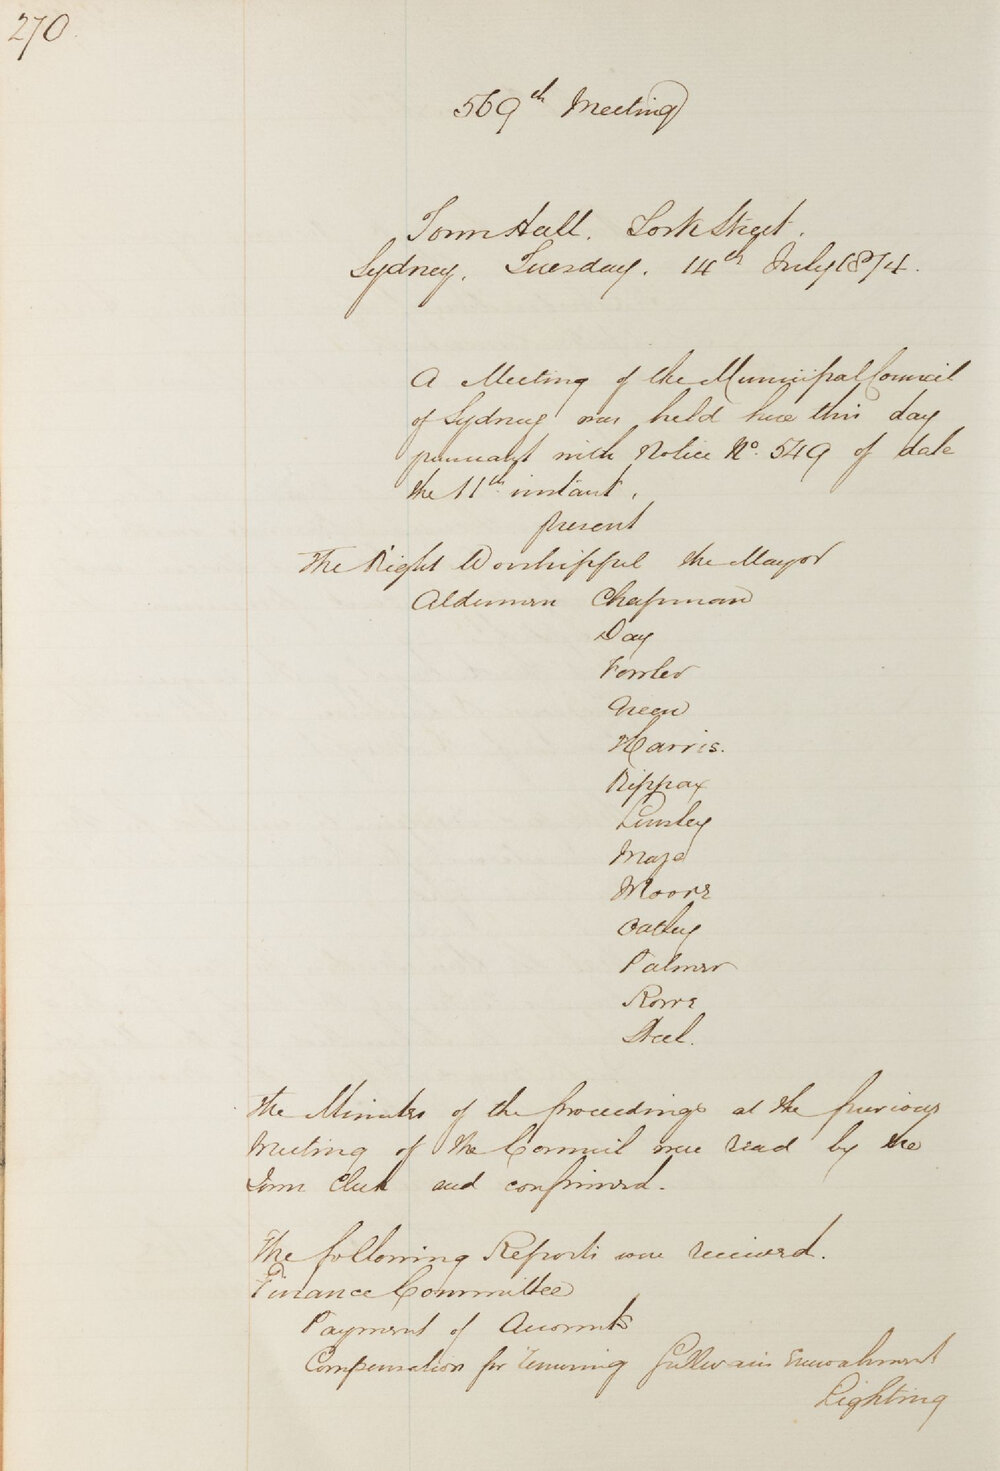 270.
569th Meeting
Town Hall. York Street.
Sydney. Tuesday. 14th July 1874.
A Meeting of the Municipal Council
of Sydney was held here this day
pursuant with Notice No. 549 of date
the 11th instant.
present
The Right Worshipful the Mayor
Aldermen Chapman
Day
Fowler
Green
Harris.
Kippax
Linsley
Maze
Moore
Oatley
Palmer
Rowe
Steel.
The Minutes of the proceedings at the previous
Meeting of the Council were read by the
Town Clerk and confirmed.
The following Reports were received.
Finance Committee
Payment of Accounts
Compensation for removing Encroachment
Lighting